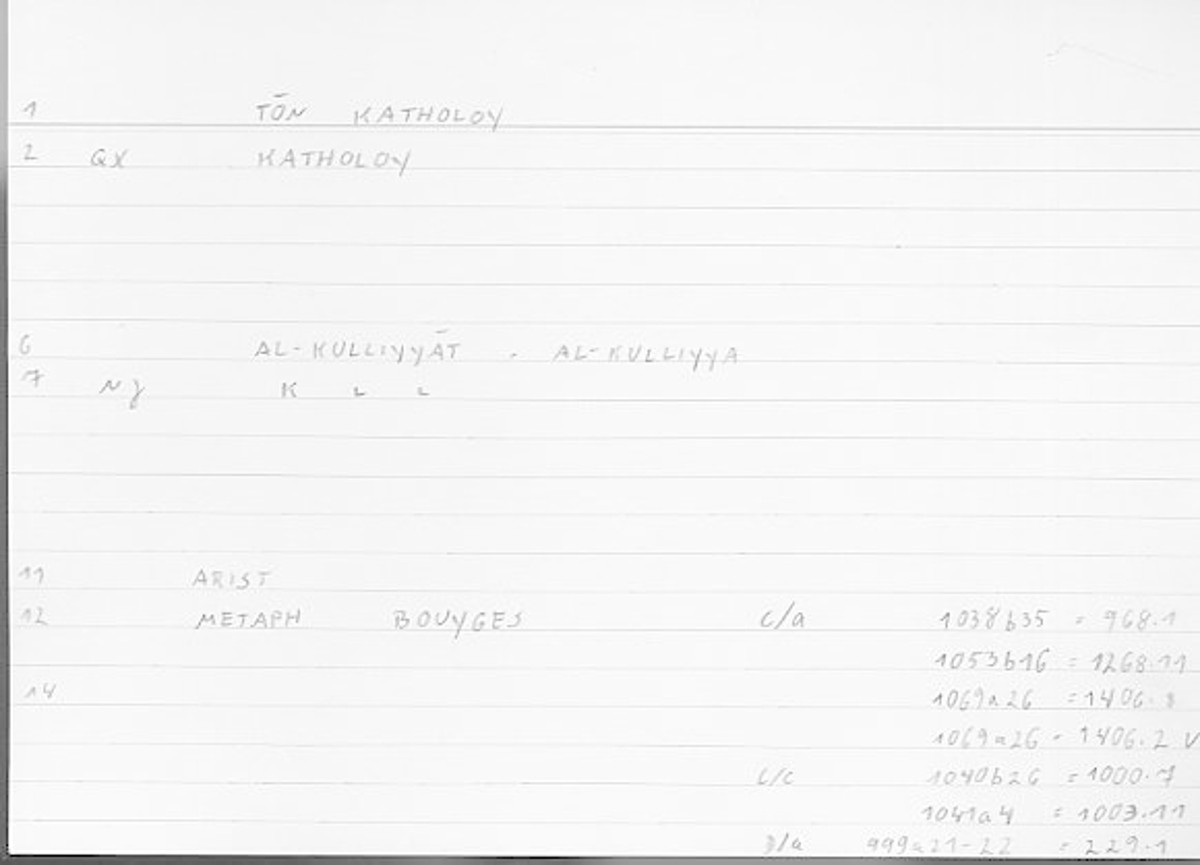 1 TŌN KATHOLOY
2 GX KATHOLOY
6 AL-KULLIYYĀT . AL-KULLIYYA
7 NJ K L L
11 ARIST
12 METAPH BOUYGES c/a 1038b35 = 968.1
1053b16 = 1268.11
14 1069a26 = 1406.
1069a26 = 1406.2 V
c/c 1040b26 = 1000.7
1041a4 = 1003.11
/a 999a21-22 = 229.1